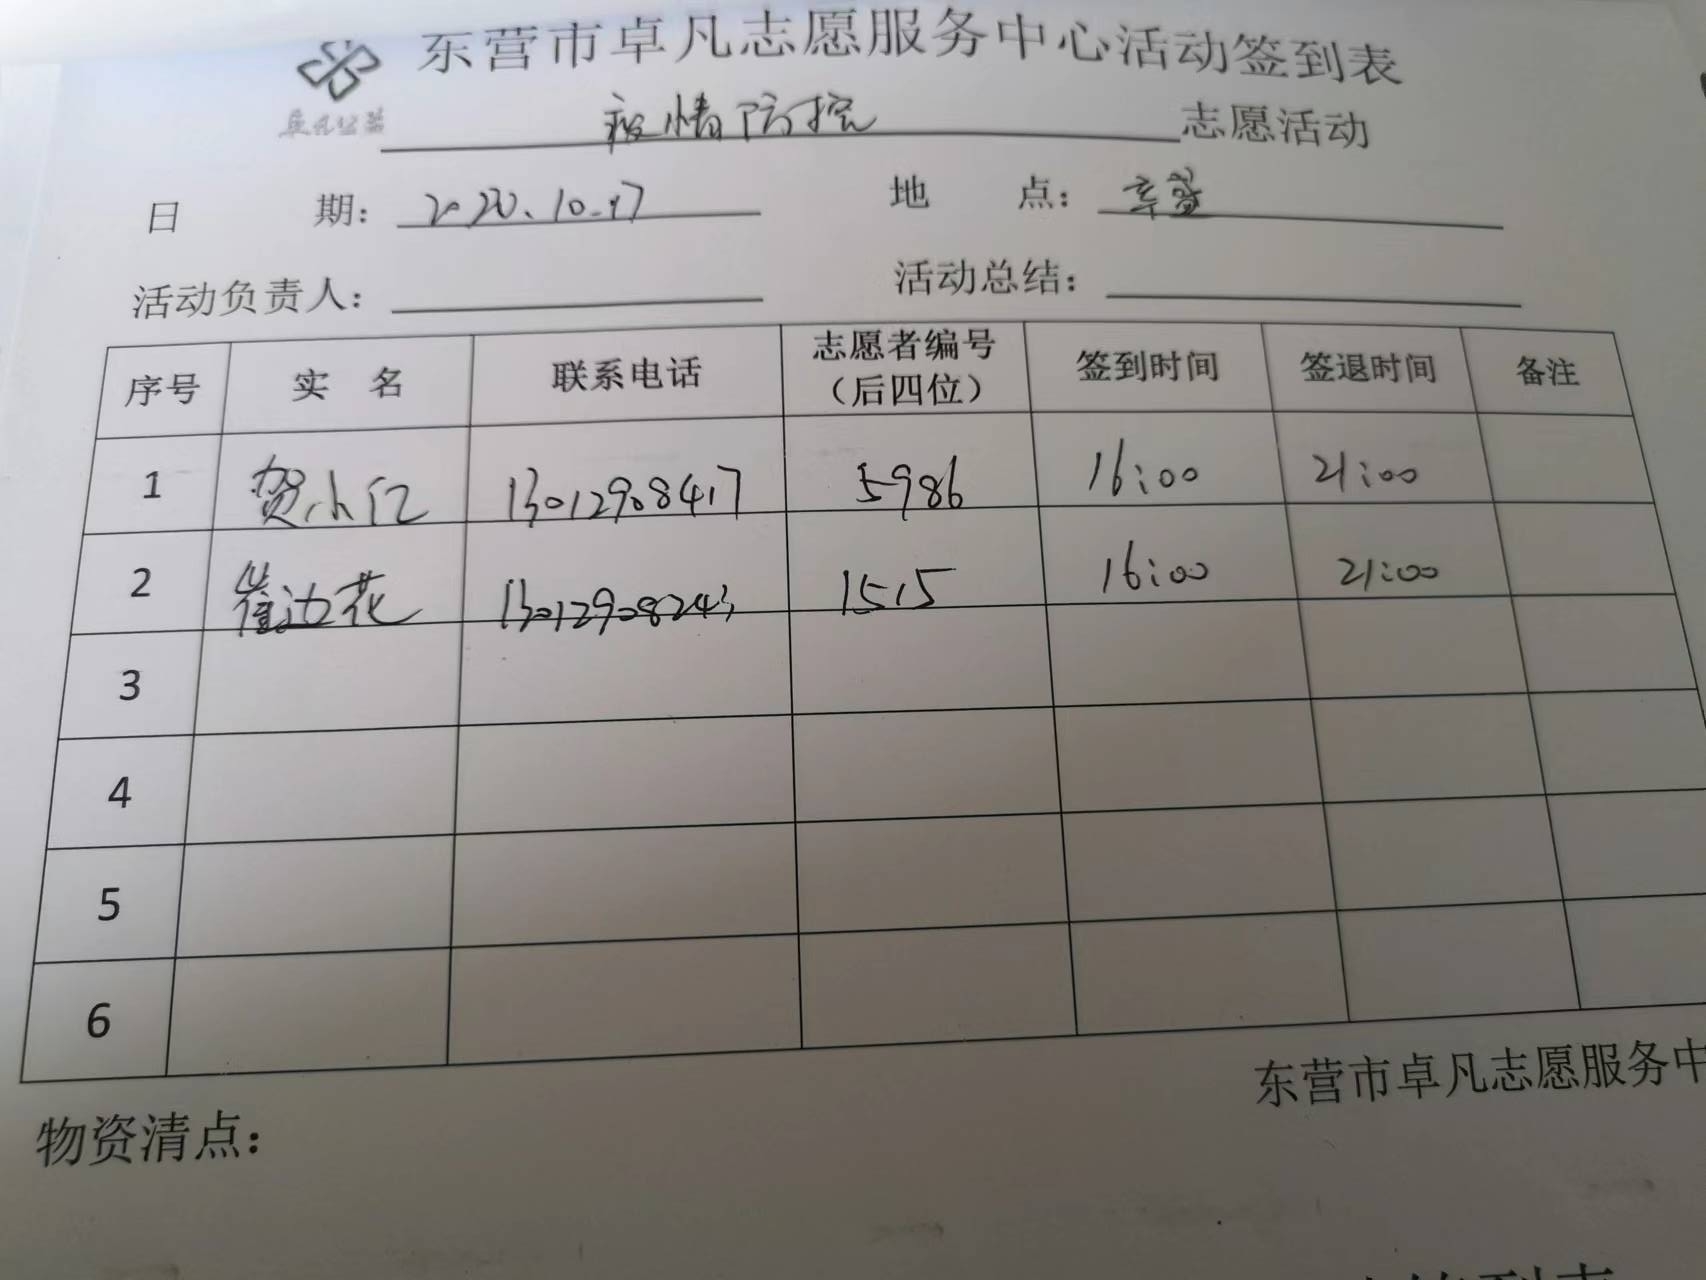 东营市卓凡志愿服务中心活动签到表
卓凡公益
疫情防控 志愿活动
日 期: 2020.10.17 地 点:
活动负责人: 活动总结:
序号 实 名 联系电话 志愿者编号（后四位） 签到时间 签退时间 备注
1 贺小红 13012908417 5986 16:00 21:00
2 崔边花 13012908243 1515 16:00 21:00
3
4
5
6
东营市卓凡志愿服务中
物资清点: